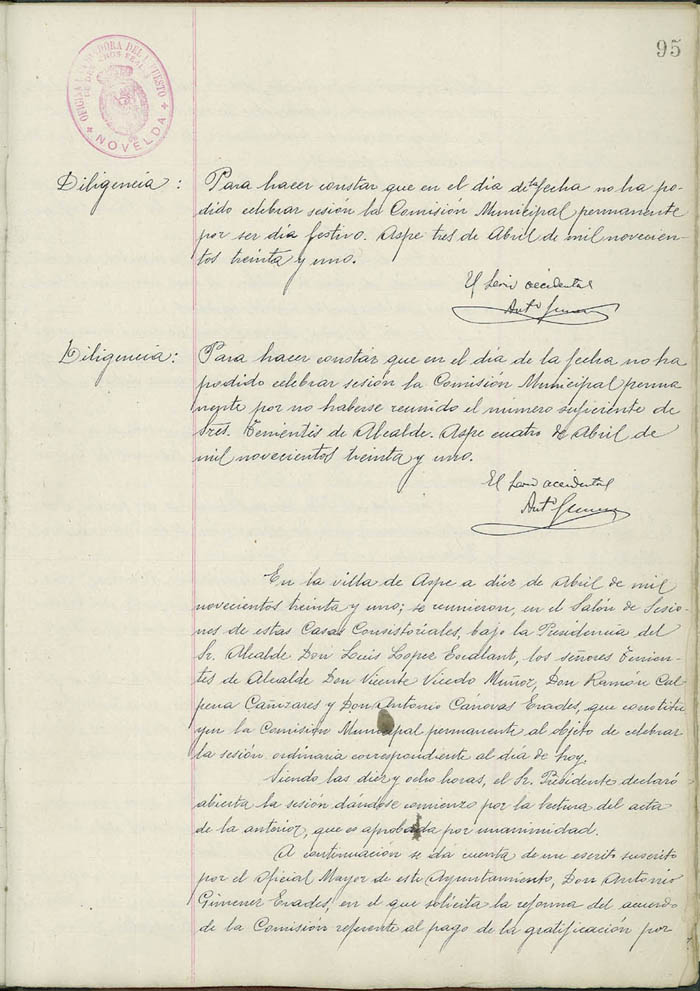 95
OFICINA LIQUIDADORA DEL IMPUESTO
DE DERECHOS REALES
NOVELDA
Diligencia: Para hacer constar que en el día de la fecha no ha po-
dido celebrar sesión la Comisión Municipal permanente
por ser día festivo. Aspe tres de Abril de mil novecien-
tos treinta y uno.
El Serio accidental
Diligencia: Para hacer constar que en el día de la fecha no ha
podido celebrar sesión la Comisión Municipal perma
nente por no haberse reunido el número suficiente de
tres. Tenientes de Alcalde. Aspe cuatro de Abril de
mil novecientos treinta y uno.
El Serio accidental
En la villa de Aspe a diez de Abril de mil
novecientos treinta y uno; se reunieron, en el Salón de Sesio-
nes de estas Casas Consistoriales, bajo la Presidencia del
Sr. Alcalde Don Luis Lopez Escalant, los señores Tenien-
tes de Alcalde Don Vicente Vicedo Muñoz, Don Ramón Cal
pena Cañizares y Don Antonio Cánovas Erades, que constitu
yen la Comisión Municipal permanente al objeto de celebrar
la sesión ordinaria correspondiente al día de hoy.
Siendo las diez y ocho horas, el Sr. Presidente declaró
abierta la sesión dándose comienzo por la lectura del acta
de la anterior, que es aprobada por unanimidad.
A continuación se dá cuenta de un escrito suscrito
por el Oficial Mayor de este Ayuntamiento, Don Antonio
Gimenez Erades, en el que solicita la reforma del acuerdo
de la Comisión referente al pago de la gratificación por